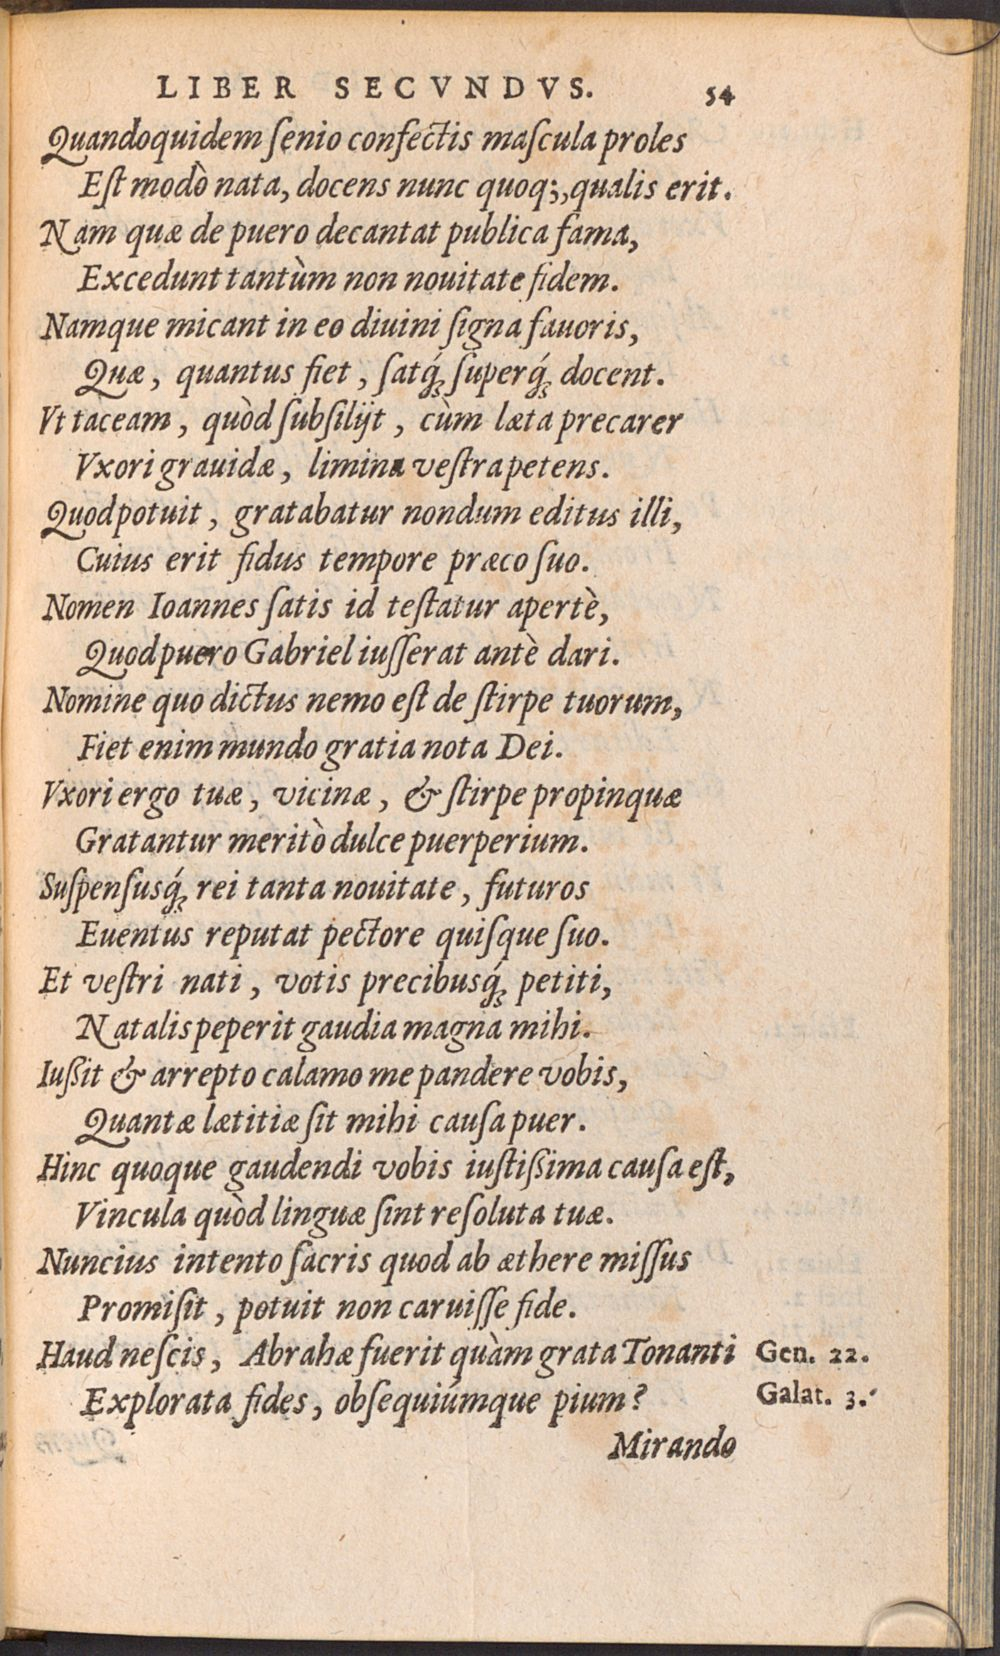 LIBER SECVNDVS. 54
Quandoquidem ſenio confectis maſcula proles
Eſt modò nata, docens nunc quoq;, qualis erit.
Nam quæ de puero decantat publica fama,
Excedunt tantùm non nouitate fidem.
Namque micant in eo diuini ſigna fauoris,
Quæ, quantus fiet, ſatq́; ſuperq́; docent.
Vt taceam, quòd ſubſilijt, cùm læta precarer
Vxori grauidæ, limina veſtra petens.
Quod potuit, gratabatur nondum editus illi,
Cuius erit fidus tempore præco ſuo.
Nomen Ioannes ſatis id teſtatur apertè,
Quod puero Gabriel iuſſerat antè dari.
Nomine quo dictus nemo eſt de ſtirpe tuorum,
Fiet enim mundo gratia nota Dei.
Vxori ergo tuæ, vicinæ, & ſtirpe propinquæ
Gratantur meritò dulce puerperium.
Suſpenſusq́; rei tanta nouitate, futuros
Euentus reputat pectore quiſque ſuo.
Et veſtri nati, votis precibusq́; petiti,
Natalis peperit gaudia magna mihi.
Iußit & arrepto calamo me pandere vobis,
Quantæ lætitiæ ſit mihi cauſa puer.
Hinc quoque gaudendi vobis iuſtißima cauſa eſt,
Vincula quòd linguæ ſint reſoluta tuæ.
Nuncius intento ſacris quod ab æthere miſſus
Promiſit, potuit non caruiſſe fide.
Haud neſcis, Abrahæ fuerit quàm grata Tonanti Gen. 22.
Explorata fides, obſequiúmque pium? Galat. 3.
Mirando